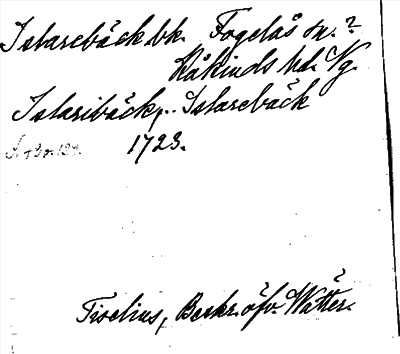 Islarebäck bk. Fogelås sn.?
Kåkinds hd. Vg.
Islaribäck, Islarebäck
1723.
Tiselius, Beskr. öfv. Wätter.